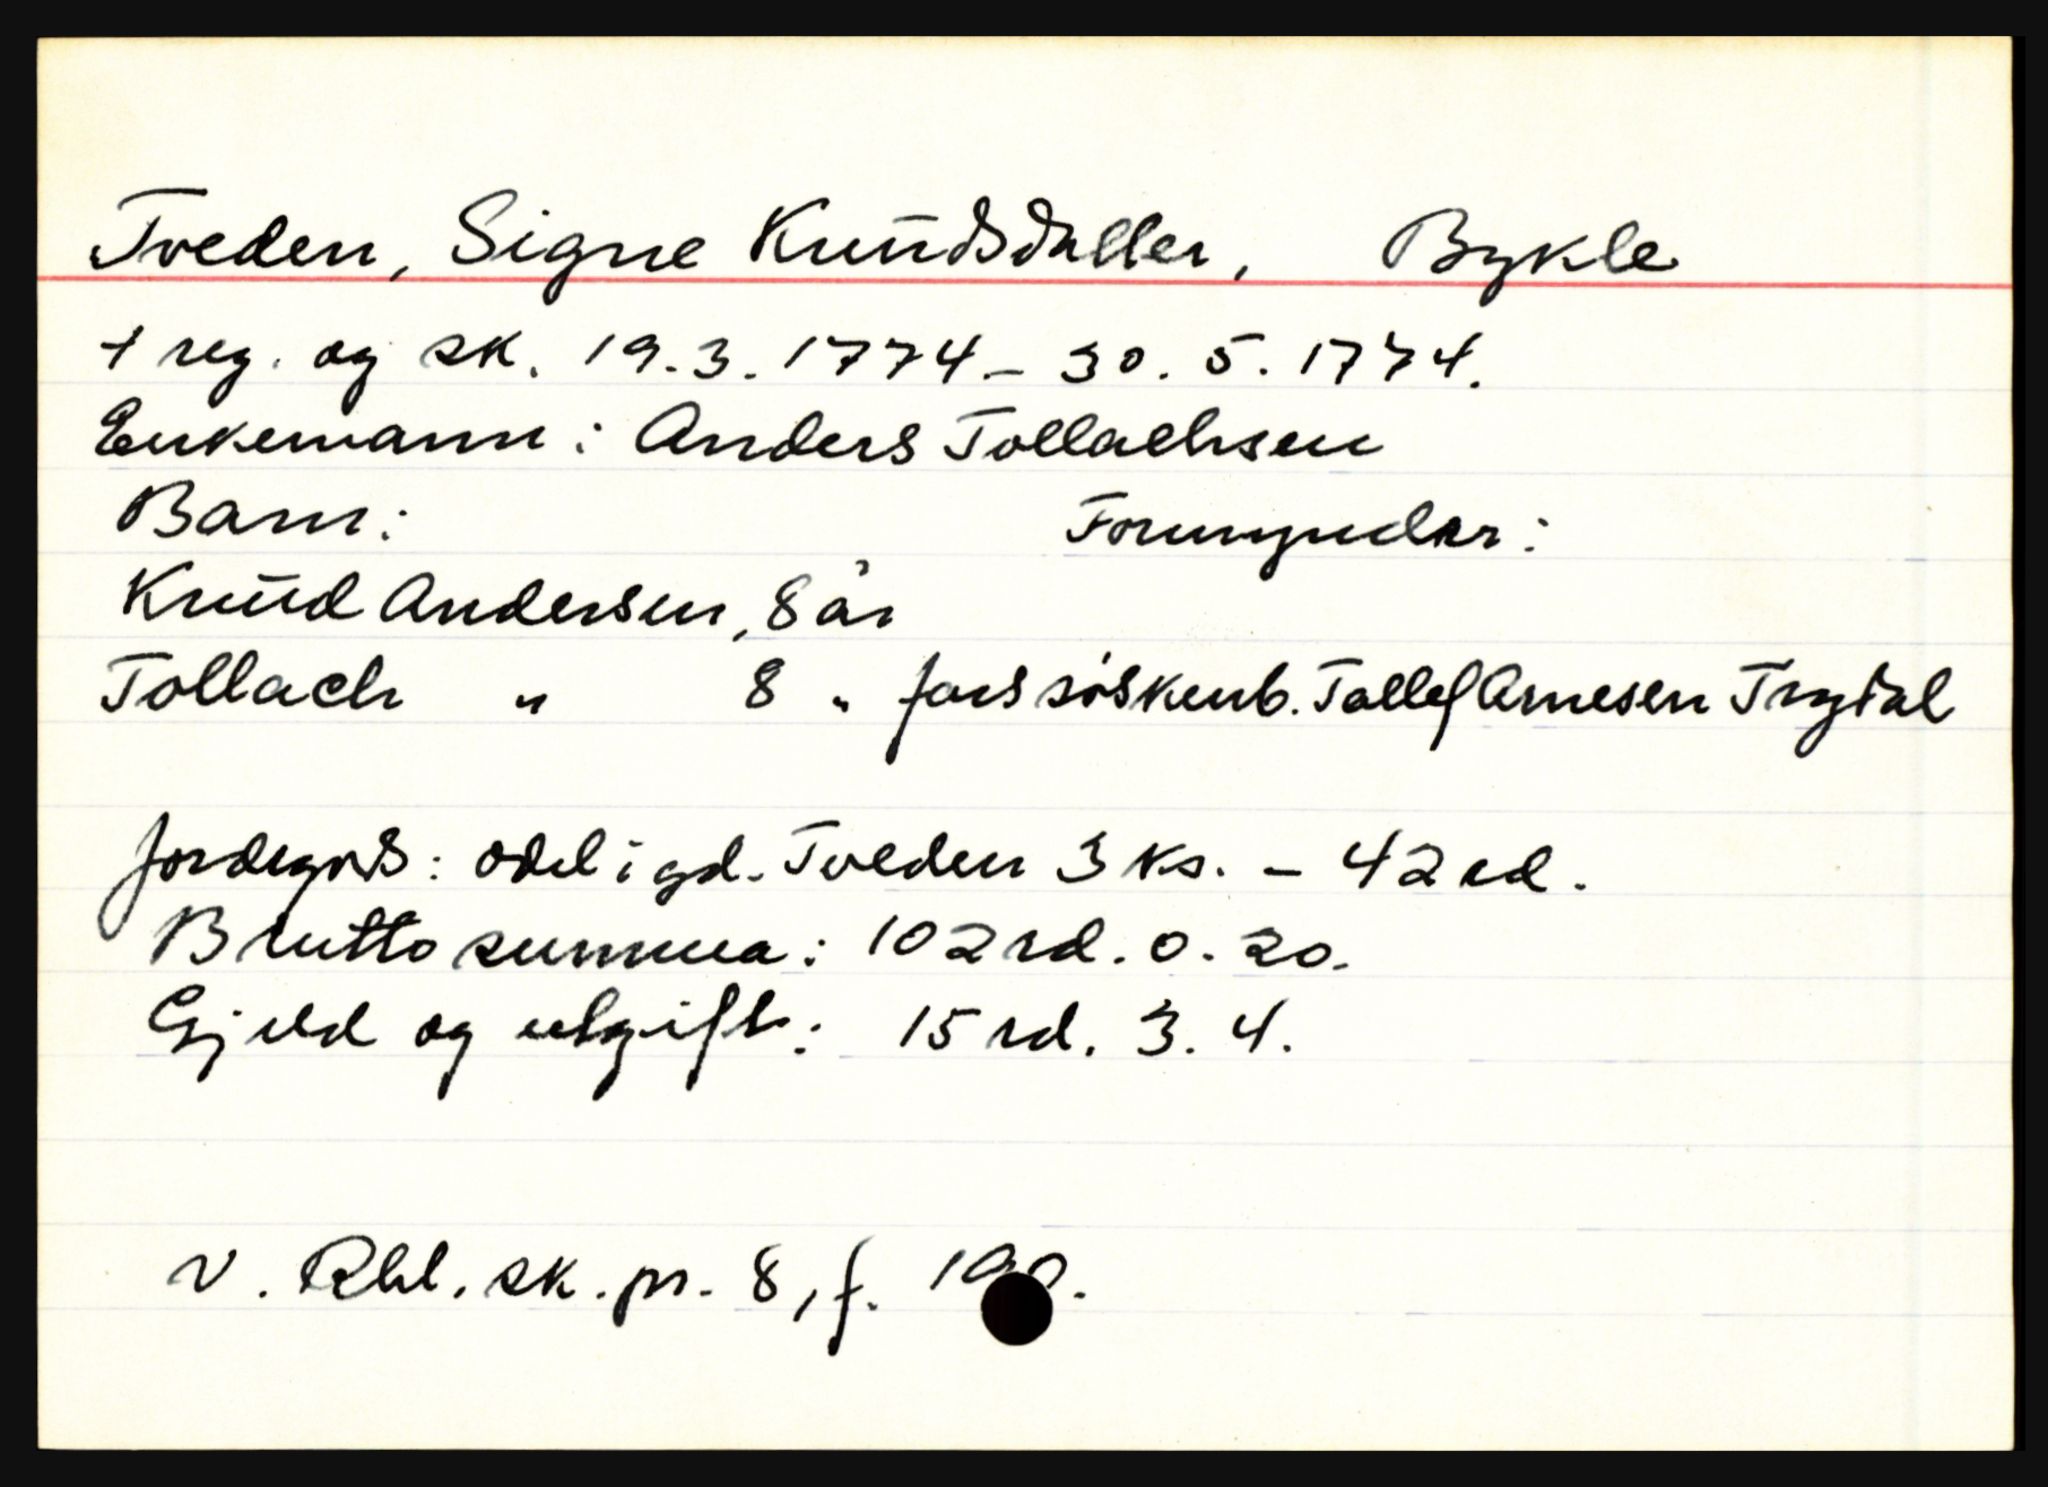 Tveden, Signe Knudsdatter, Bykle
† reg. og sk. 19.3.1774 - 30.5.1774.
Enkemann: Anders Tollachsen
Barn: Formynder:
Knud Andersen, 8 år
Tollach " 8 " fars søskenb. Tollef Arnesen Trydal
Jordegods: odel i gd. Tveden 3 ks. - 42 rd.
Brutto summa: 102 rd. 0. 20.
Gjeld og utgift: 15 rd. 3. 4.
V. Rbl. sk. pr. 8, f.